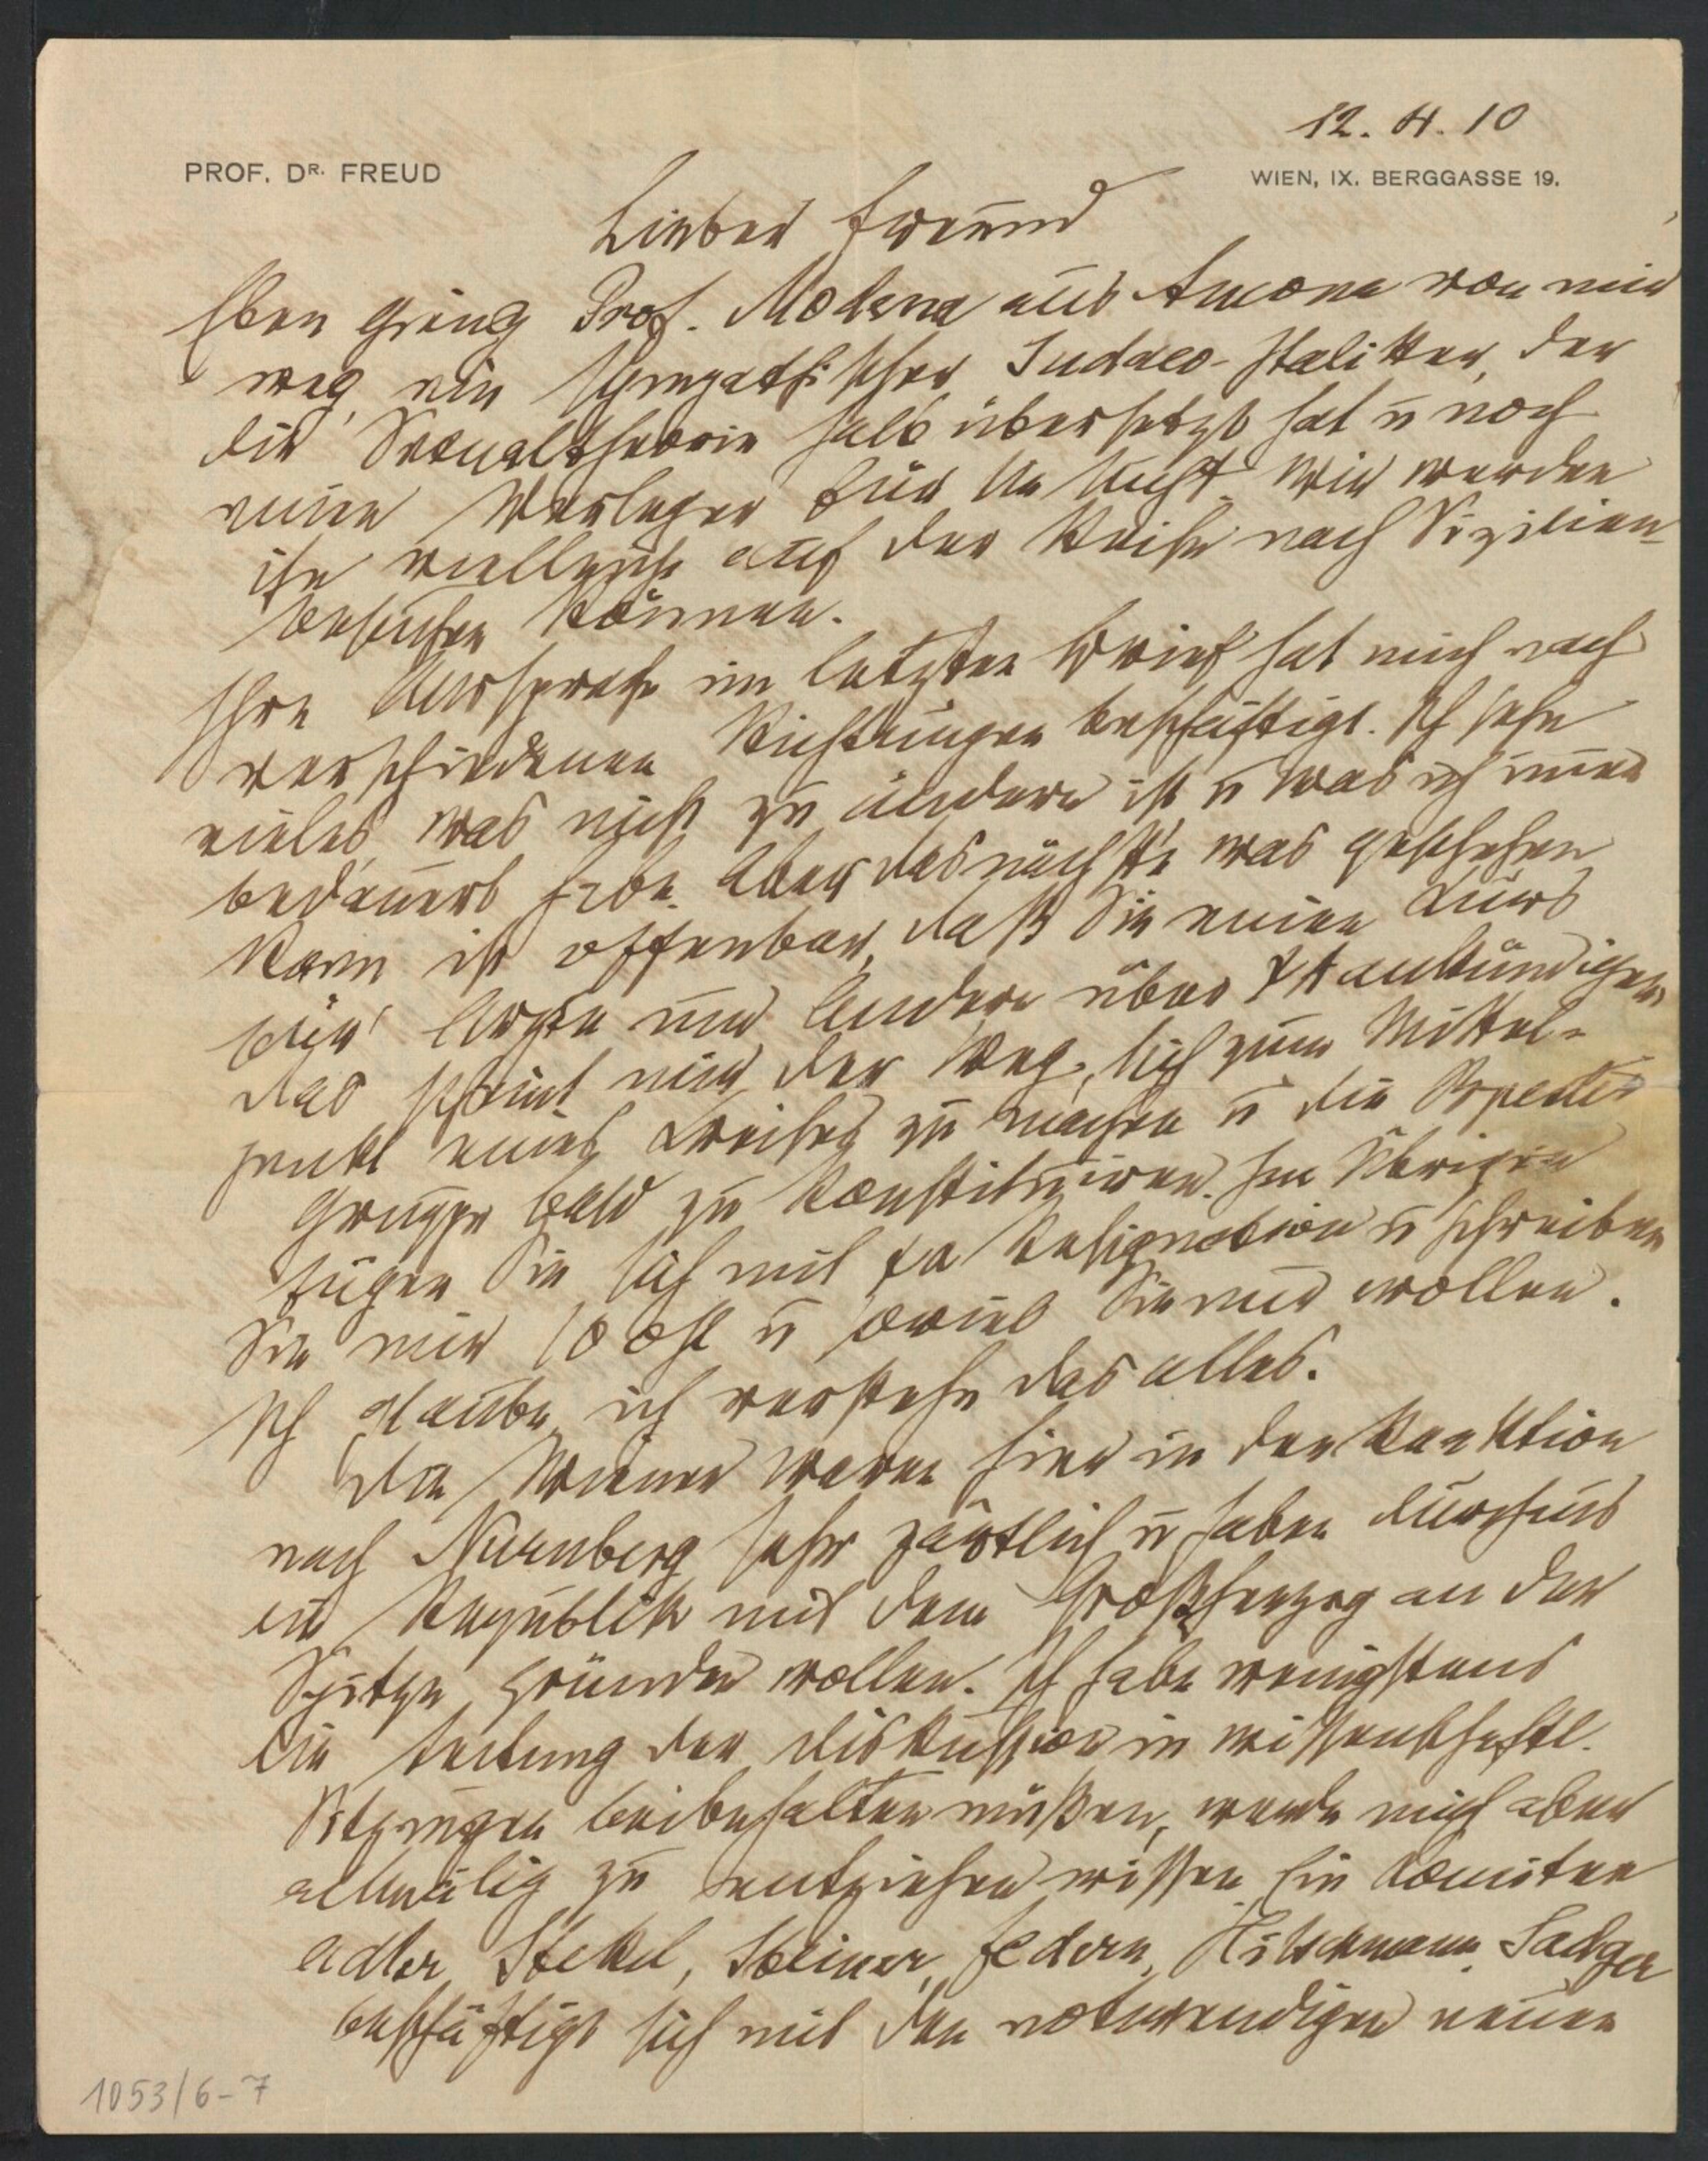 12. 4. 10
PROF. DR. FREUD
WIEN, IX. BERGGASSE 19.
Lieber Freund
Eben ging Prof. Modena aus Ancona von mir
weg, ein sympathischer Judaeo-Italiker, der
die Sexualtheorie halb übersetzt hat u noch
einen Verleger für sie sucht. Wir werden
ihn vielleicht auf der Reise nach Sizilien
besuchen können.
Ihre Aussprache im letzten Brief hat mich nach
verschiedenen Richtungen beschäftigt. Ich sehe
vieles, was nicht zu ändern ist u was ich immer
bedauert habe. Aber das nächste was geschehen
kann ist offenbar, daß Sie einen Kurs
für Ärzte und Andere über ΨA ankündigen,
das scheint mir der Weg, sich zum Mittel-
punkt eines Kreises zu machen u die Bpester
Gruppe bald zu konstituiren. Im Übrigen
fügen Sie sich mit Resignation u schreiben
Sie mir so oft u soviel Sie nur wollen.
Ich glaube, ich verstehe das alles.
Die Wiener waren hier in der Reaktion
nach Nürnberg sehr zärtlich u haben durchaus
die Republik mit dem Großherzog an der
Spitze gründen wollen. Ich habe wenigstens
die Leitung der Diskussion in wissenschaftl.
Sitzungen beibehalten müßen, werde mich aber
allmälig zu entziehen wissen. Ein Komitee
Adler, Stekel, Steiner, Federn, Hitschmann, Sadger
beschäftigt sich mit den notwendigen neuen
1053/6-7